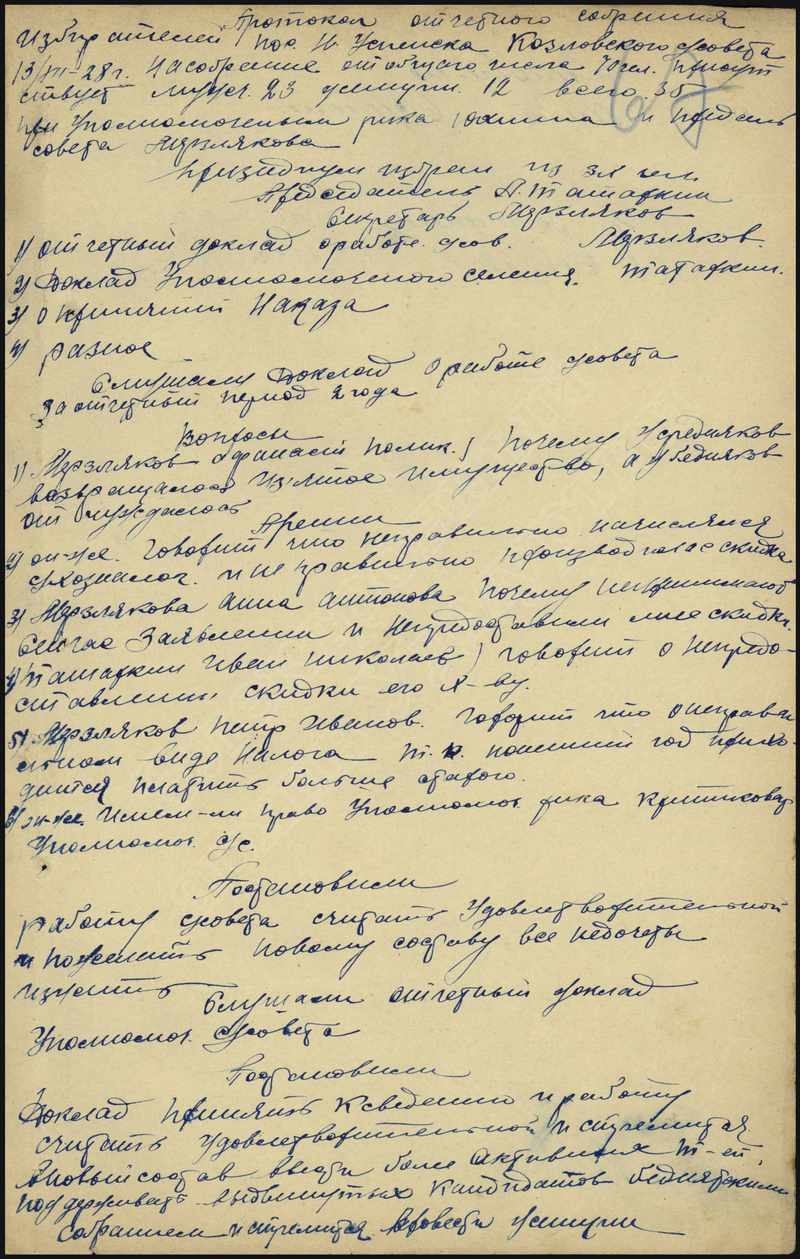 Протокол отчетного собрания
Избирателей пос. Н. Успенска Козловского с/совета
13/XII-28 г. На собрание от общего числа 70 чел. присут
ствует мужч. 23 женщин. 12 всего 35
При Уполномоченым рика и председ
совета Мерзлякова
Призидиум избран из 3х чел.
Председатель А. Татаркин
Секретарь Мерзляков
1) отчетный доклад о работе с/сов. Мерзляков.
2) Доклад Уполномоченого селения. Татаркин.
3) О принятии Наказа
4) разное
Слушали Доклад о работе с/совета
За отчетный период 2 года
Вопросы
1) Мерзляков почему у середняков
возвращалось изъятое имущество, а у бедняков
отчуждалось
Прении
2) он-же. Говорит что неправильно начислялся
с/хозналог. и не правильно производилась скидка
3) Мерзлякова Анна Антонова почему непринимают
сейчас Заявлении и непредоставили мне скидки.
4) Татаркин Иван Николаев) говорит о непредо-
ставлении скидки его х-ву.
5) Мерзляков Петр Иванов. Говорит что о неправи
льном виде Налога т.к. нонешний год прихо-
дится платить больше старого.
6) он-же. Имеем-ли право Уполномоч. рика критиковать
Уполномоч. с/с.
Постановили
работу с/совета считать Удовлетворительной
и пожелать новому составу все недочеты
изжить
Слушали отчетный доклад
Уполномоч. с/совета
Постановили
Доклад принять к сведению и работу
считать удовлетворительной и стремится
в новый состав ввести более активных т-ей,
поддерживать выдвинутых кандидатов бедняцкими
собранием и стремится провести женщин